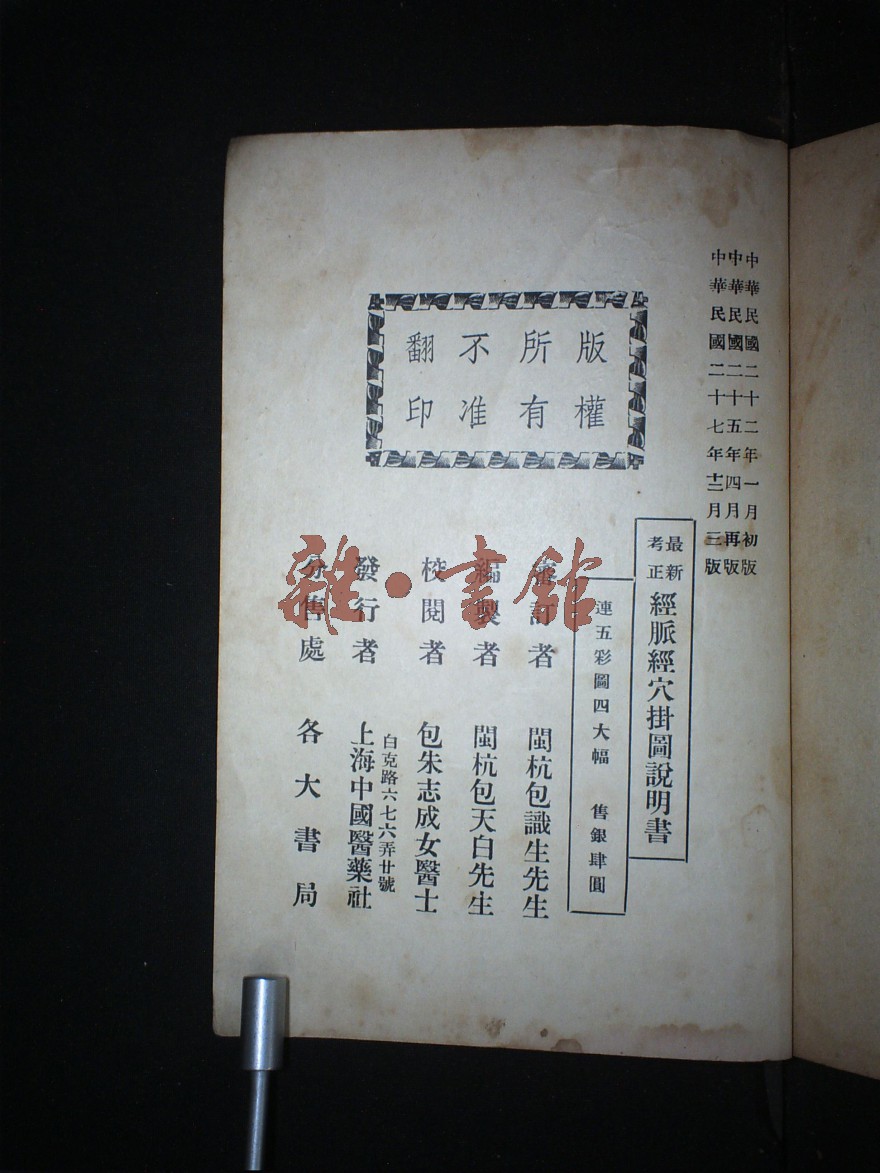 中華民國二十二年一月初版
中華民國二十五年四月再版
中華民國二十七年十二月三版
版權
所有
不准
翻印
最新
考正
經脈經穴掛圖說明書
連五彩圖四大幅 售銀肆圓
審訂者 閩杭包識生先生
編製者 閩杭包天白先生
校閱者 包朱志成女醫士
白克路六七六弄廿號
發行者 上海中國醫藥社
分售處 各大書局
雜·書館